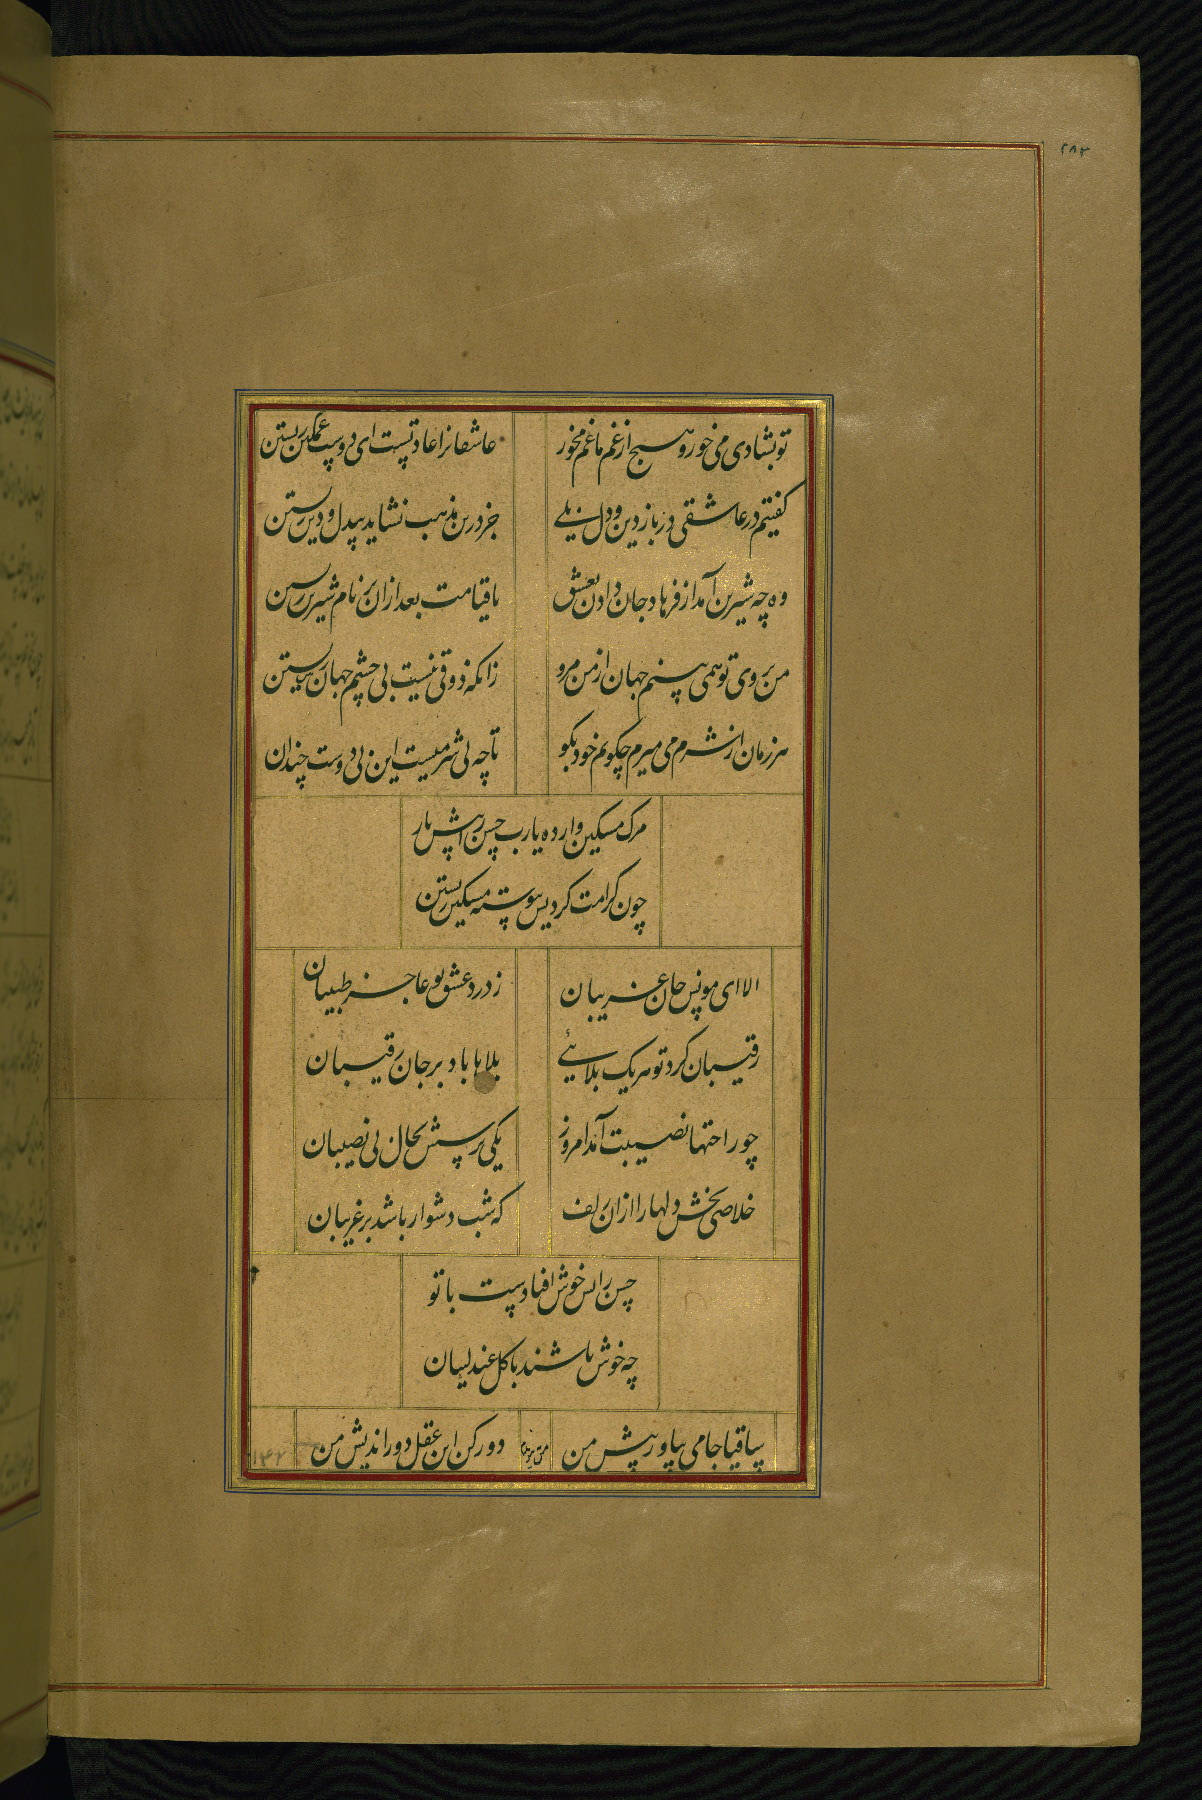 ۲۸۲
تو بشادی می خور و هیچ از غم ما غم مخور عاشقانرا عادتست ای دوست غمگین زیستن
کفتیم در عاشقی در باز دین و دل بلے جز درین مذهب نشاید بیدل و دین زیستن
وه چه شیرین آمد از فرهاد جان دادن بعشق تا قیامت بعد ازان بر نام شیرین زیستن
من بروی تو همی بینم جهان از من مرو زانکه ذوقی نیست بی چشم جهان بین زیستن
هر زمان از شرم می میرم چکویم خود بکو تا چه بی شرمیست این بی دوست چندان
مرک مسکین وار ده یارب حسن را پیش یار
چون کرامت کردیش پیوسته مسکین زیستن
الا ای مونس جان غریبان ز درد عشق تو عاجز طبیبان
رقیبان کرد تو هر یک بلائیے بلاها باد بر جان رقیبان
چو راحتها نصیبت آمد امروز یکی پرسش بحال بی نصیبان
خلاصی بخش دلها را ازان زلف که شب دشوار باشد بر غریبان
حسن را بس خوش افتادست با تو
چه خوش باشند با کل عندلیبان
ساقیا جامی بیاور پیش من دور کن این عقل دور اندیش من
۱۴۲